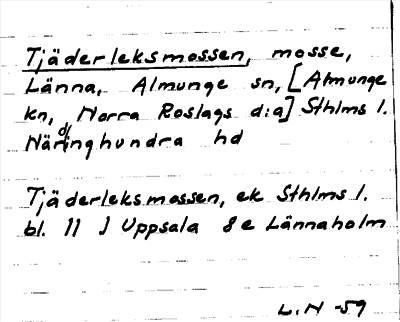 Tjäderleksmossen, mosse,
Länna, Almunge sn, [Almunge
kn, Norra Roslags d:a] Sthlms l.
Närdinghundra hd
Tjäderleksmossen, ek Sthlms l.
bl. 11 J Uppsala 8e Lännaholm
L.N -59